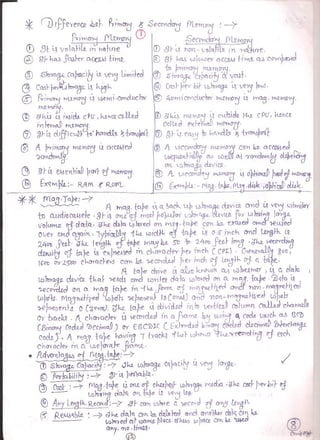 * Difference bet Primary & Secondary Memory :→
Primary Memory
① Secondary Memory
① It is volatile in nature
① It is non-volatile in nature.
② It has faster access time.
② It has slower access time as compared
to primary memory.
③ Storage capacity is very limited
③ Storage capacity is vast.
④ Cost per bit storage is high.
④ Cost per bit storage is very low.
⑤ Primary memory is semi-conductor
memory.
⑤ Semiconductor memory is mag. memory.
⑥ This is inside CPU, hence called
internal memory
⑥ This memory is outside the CPU, hence
called external memory.
⑦ It is difficult to handle & transport
⑦ It is easy to handle & transport
⑧ A primary memory is accessed
randomly
⑧ A secondary memory can be accessed
sequentially as well as randomly depending
on storage device.
⑨ It is essential part of memory
⑨ A secondary memory is optional part of memory
⑩ Example:- RAM & ROM
⑩ Example :- Mag. tape, Mag. disk, optical disk.
** Mag. Tape :→
A mag. tape is a back up storage device and is very similar
to audiocassete. It is one of most popular storage device for storing large
volume of data. The data stored on mag. tape can be erased and reused
over and again. Typically the width of tape is 0.5 inch and length is
2400 feet. The length of tape may be 50 to 2400 feet long. The recording
density of tape is expressed in character per inch (CPI). Generally 800,
1600 or 2500 characters can be recorded per inch of length of a tape.
A tape drive is also known as is a data
storage device that reads and writes data stored on a mag. tape. Data is
recorded on a mag. tape in the form of magnetized and non-magnetized
spots. Magnetized spots represent 1s (ones) and non-magnetized spots
represents 0 (zero). The tape is divided into vertical column called channels
or tracks. A character is recorded in a frame by using a code such as BCD
(Binary Coded Decimal) or EBCDIC (Extended binary coded decimal Interchange
Code). A mag. tape having 7 tracks that shows the recording of each
character in a separate frame.
• Advantages of Mag. tape :→
① Storage Capacity :→ The storage capacity is very large.
② Portability :→ It is portable.
③ Cost :→ Mag. tape is one of cheapest storage media. The cost per bit of
storing data on tape is very low.
④ Any Length Record :→ It can store a record of any length
⑤ Reusable :→ The data can be deleted and another data can be
stored at same place. This space can be used
any no. times.